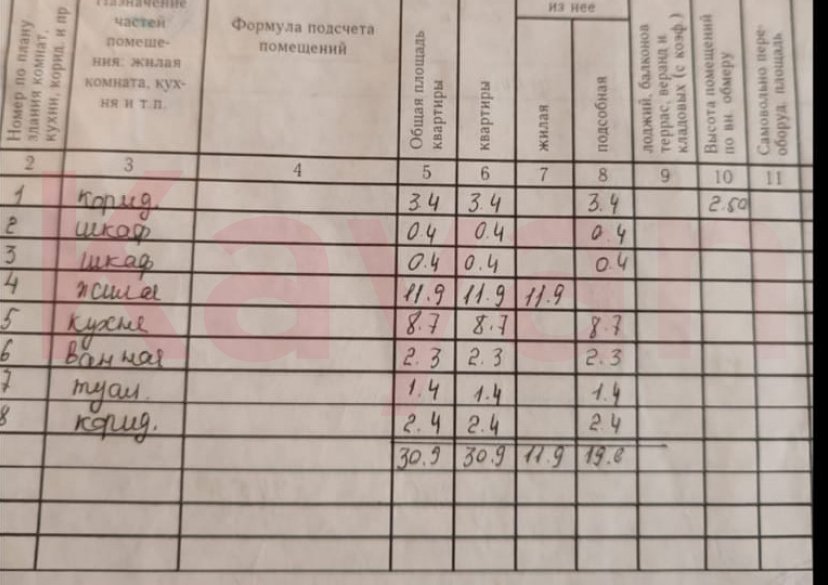 Номер по плану здания комнат, кухни, корид. и пр
Назначение частей помеще- ния: жилая комната, кух- ня и т.п.
Формула подсчета помещений
Общая площадь квартиры
квартиры
из нее
жилая
подсобная
лоджий, балконов террас, веранд и кладовых (с коэф.)
Высота помещений по вн. обмеру
Самовольно пере- оборуд. площадь
2 3 4 5 6 7 8 9 10 11
1 корид. 3.4 3.4 3.4 2.50
2 шкаф 0.4 0.4 0.4
3 шкаф 0.4 0.4 0.4
4 жилая 11.9 11.9 11.9
5 кухня 8.7 8.7 8.7
6 ванная 2.3 2.3 2.3
7 туал. 1.4 1.4 1.4
8 корид. 2.4 2.4 2.4
30.9 30.9 11.9
Kayan